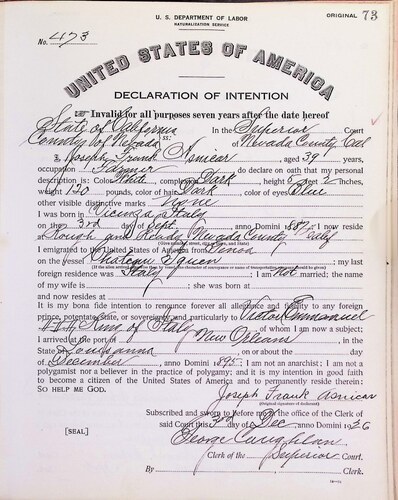 U. S. DEPARTMENT OF LABOR
NATURALIZATION SERVICE
ORIGINAL 73
No. 473
UNITED STATES OF AMERICA
DECLARATION OF INTENTION
Invalid for all purposes seven years after the date hereof
State of California
County of Nevada ss: In the Superior Court of Nevada County Cal
I, Joseph Frank Asnicar, aged 39 years,
occupation Farmer, do declare on oath that my personal
description is: Color White, complexion Dark, height 5 feet 2 inches,
weight 120 pounds, color of hair Dark, color of eyes Blue
other visible distinctive marks None
I was born in Vicenza Italy
on the 3rd day of Sept., anno Domini 1887; I now reside
at Rough and Ready Nevada County Calif
(Give number, street, city or town, and State)
I emigrated to the United States of America from Genoa
on the vessel Chateau Yquen; my last
foreign residence was Italy; I am not married; the name
of my wife is; she was born at
and now resides at
It is my bona fide intention to renounce forever all allegiance and fidelity to any foreign
prince, potentate, state, or sovereignty, and particularly to Victor Emmanuel
King of Italy, of whom I am now a subject;
I arrived at the port of New Orleans, in the
State of Louisianna, on or about the day
of December, anno Domini 1895; I am not an anarchist; I am not a
polygamist nor a believer in the practice of polygamy; and it is my intention in good faith
to become a citizen of the United States of America and to permanently reside therein:
SO HELP ME GOD.
Joseph Frank Asnicar
(Original signature of declarant)
Subscribed and sworn to before me in the office of the Clerk of
said Court this 3rd day of Dec, anno Domini 1926
[SEAL]
George Coughlan
Clerk of the Superior Court.
By, Clerk.